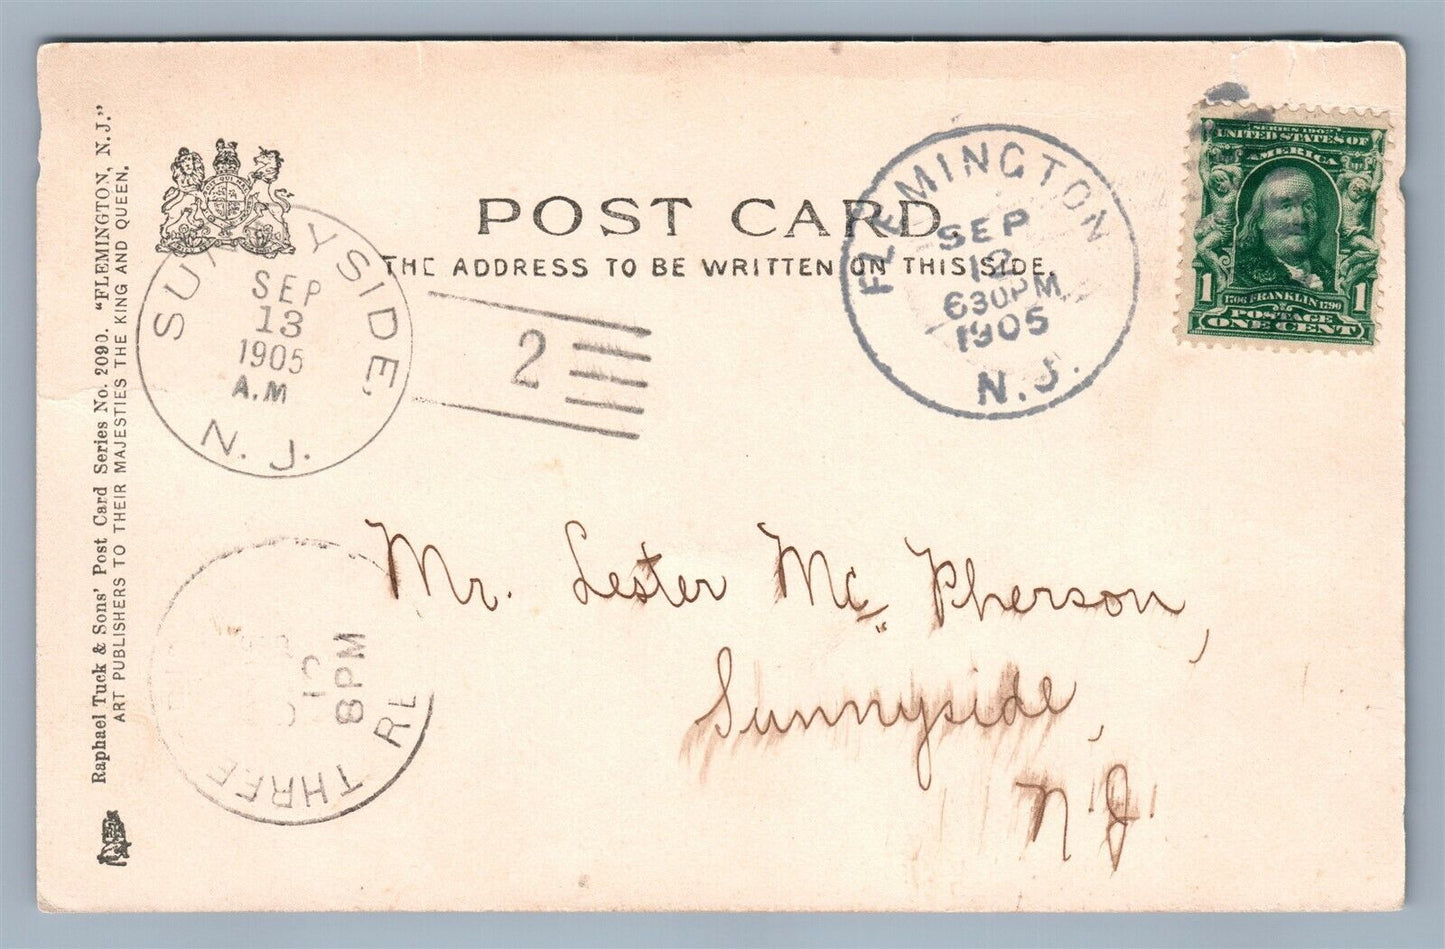 Raphael Tuck & Sons' Post Card Series No. 2090. "FLEMINGTON, N.J."
ART PUBLISHERS TO THEIR MAJESTIES THE KING AND QUEEN.
POST CARD.
THE ADDRESS TO BE WRITTEN ON THIS SIDE.
SUNNYSIDE,
SEP
13
1905
A.M
N. J.
2
FLEMINGTON
SEP
12
630PM
1905
N.J.
SERIES 1902
UNITED STATES OF
AMERICA
1 1706 FRANKLIN 1790 1
POSTAGE
ONE CENT
Mr. Lester Mc Pherson,
Sunnyside,
N. J.
8PM
THREE